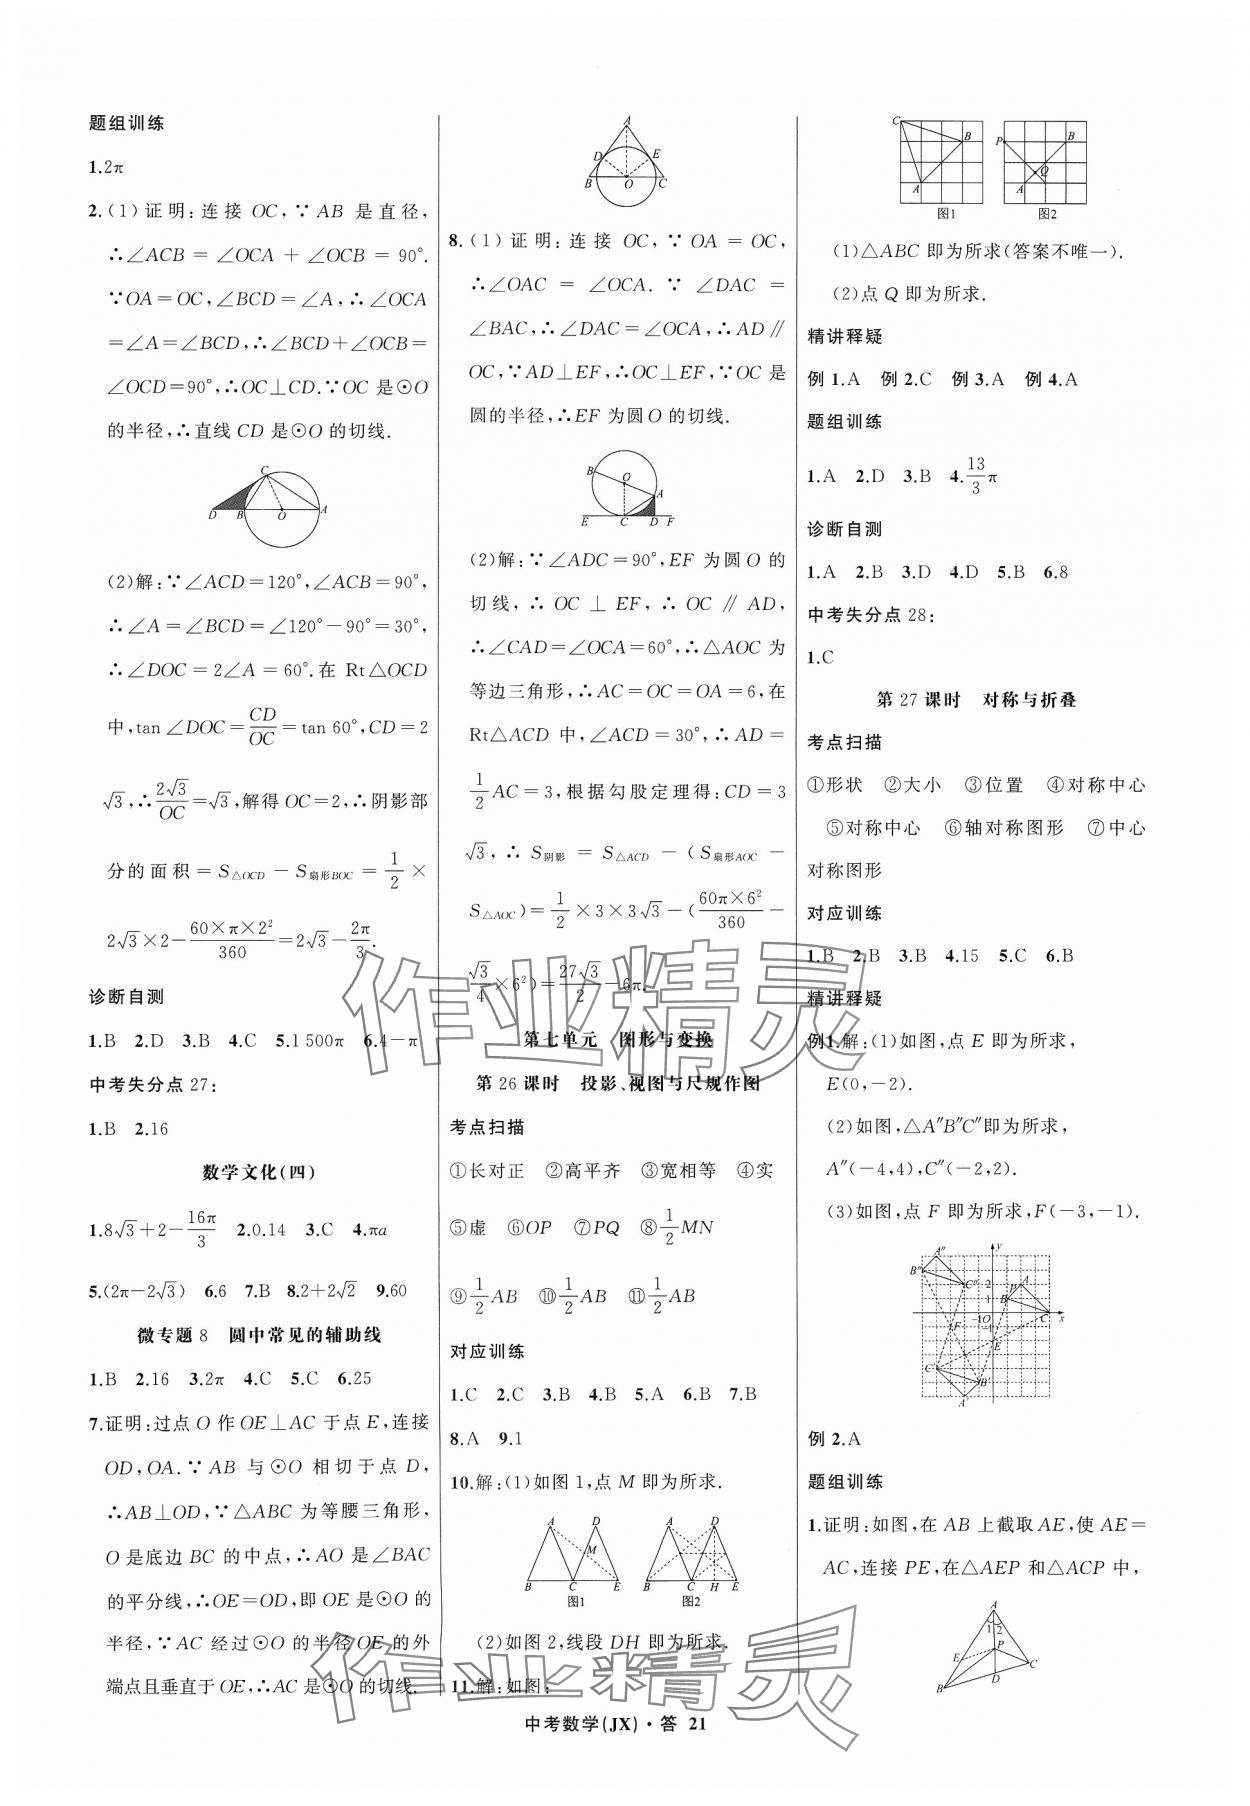 题组训练
1.2π
2.(1)证明:连接 OC,∵AB 是直径,
∴∠ACB = ∠OCA + ∠OCB = 90°.
∵OA=OC,∠BCD=∠A,∴∠OCA
=∠A=∠BCD,∴∠BCD+∠OCB=
∠OCD=90°,∴OC⊥CD.∵OC 是⊙O
的半径,∴直线 CD 是⊙O 的切线.
C
D B O A
(2)解:∵∠ACD=120°,∠ACB=90°,
∴∠A=∠BCD=∠120°-90°=30°,
∴∠DOC=2∠A=60°.在 Rt△OCD
中,tan∠DOC=CD/OC=tan 60°,CD=2
√3,∴2√3/OC=√3,解得 OC=2,∴阴影部
分的面积=S△OCD-S扇形BOC=1/2×
2√3×2-60×π×2²/360=2√3-2π/3.
诊断自测
1.B 2.D 3.B 4.C 5.1 500π 6.4-π
中考失分点 27:
1.B 2.16
数学文化(四)
1.8√3+2-16π/3 2.0.14 3.C 4.πa
5.(2π-2√3) 6.6 7.B 8.2+2√2 9.60
微专题 8 圆中常见的辅助线
1.B 2.16 3.2π 4.C 5.C 6.25
7.证明:过点 O 作 OE⊥AC 于点 E,连接
OD,OA.∵AB 与⊙O 相切于点 D,
∴AB⊥OD,∵△ABC 为等腰三角形,
O 是底边 BC 的中点,∴AO 是∠BAC
的平分线,∴OE=OD,即 OE 是⊙O 的
半径,∵AC 经过⊙O 的半径 OE 的外
端点且垂直于 OE,∴AC 是⊙O 的切线.
A
D E
B O C
8.(1)证明:连接 OC,∵OA=OC,
∴∠OAC = ∠OCA. ∵ ∠DAC =
∠BAC,∴∠DAC=∠OCA,∴AD∥
OC,∵AD⊥EF,∴OC⊥EF,∵OC 是
圆的半径,∴EF 为圆 O 的切线.
B O A
E C D F
(2)解:∵∠ADC=90°,EF 为圆 O 的
切线,∴OC⊥EF,∴OC∥AD,
∴∠CAD=∠OCA=60°,∴△AOC 为
等边三角形,∴AC=OC=OA=6,在
Rt△ACD 中,∠ACD=30°,∴AD=
1/2AC=3,根据勾股定理得:CD=3
√3,∴S阴影=S△ACD-(S扇形AOC-
S△AOC)=1/2×3×3√3-(60π×6²/360-
√3/4×6²)=27√3/2-6π.
第七单元 图形与变换
第 26 课时 投影、视图与尺规作图
考点扫描
①长对正 ②高平齐 ③宽相等 ④实
⑤虚 ⑥OP ⑦PQ ⑧1/2MN
⑨1/2AB ⑩1/2AB ⑪1/2AB
对应训练
1.C 2.C 3.B 4.B 5.A 6.B 7.B
8.A 9.1
10.解:(1)如图 1,点 M 即为所求.
A D A D
M
B C E B C H E
图1 图2
(2)如图 2,线段 DH 即为所求.
11.解:如图:
C B P B
Q
A A
图1 图2
(1)△ABC 即为所求(答案不唯一).
(2)点 Q 即为所求.
精讲释疑
例 1.A 例 2.C 例 3.A 例 4.A
题组训练
1.A 2.D 3.B 4.13/3π
诊断自测
1.A 2.B 3.D 4.D 5.B 6.8
中考失分点 28:
1.C
第 27 课时 对称与折叠
考点扫描
①形状 ②大小 ③位置 ④对称中心
⑤对称中心 ⑥轴对称图形 ⑦中心
对称图形
对应训练
1.B 2.B 3.B 4.15 5.C 6.B
精讲释疑
例1.解:(1)如图,点 E 即为所求,
E(0,-2).
(2)如图,△A″B″C″即为所求,
A″(-4,4),C″(-2,2).
(3)如图,点 F 即为所求,F(-3,-1).
y
A″
B″ C″ 2 P A
1 B C
-1 O x
-1
F
E
C′ B′
A′
例 2.A
题组训练
1.证明:如图,在 AB 上截取 AE,使 AE=
AC,连接 PE,在△AEP 和△ACP 中,
A
1 2
E P
C
B D
中考数学(JX)·答 21
作业精灵
作业精灵